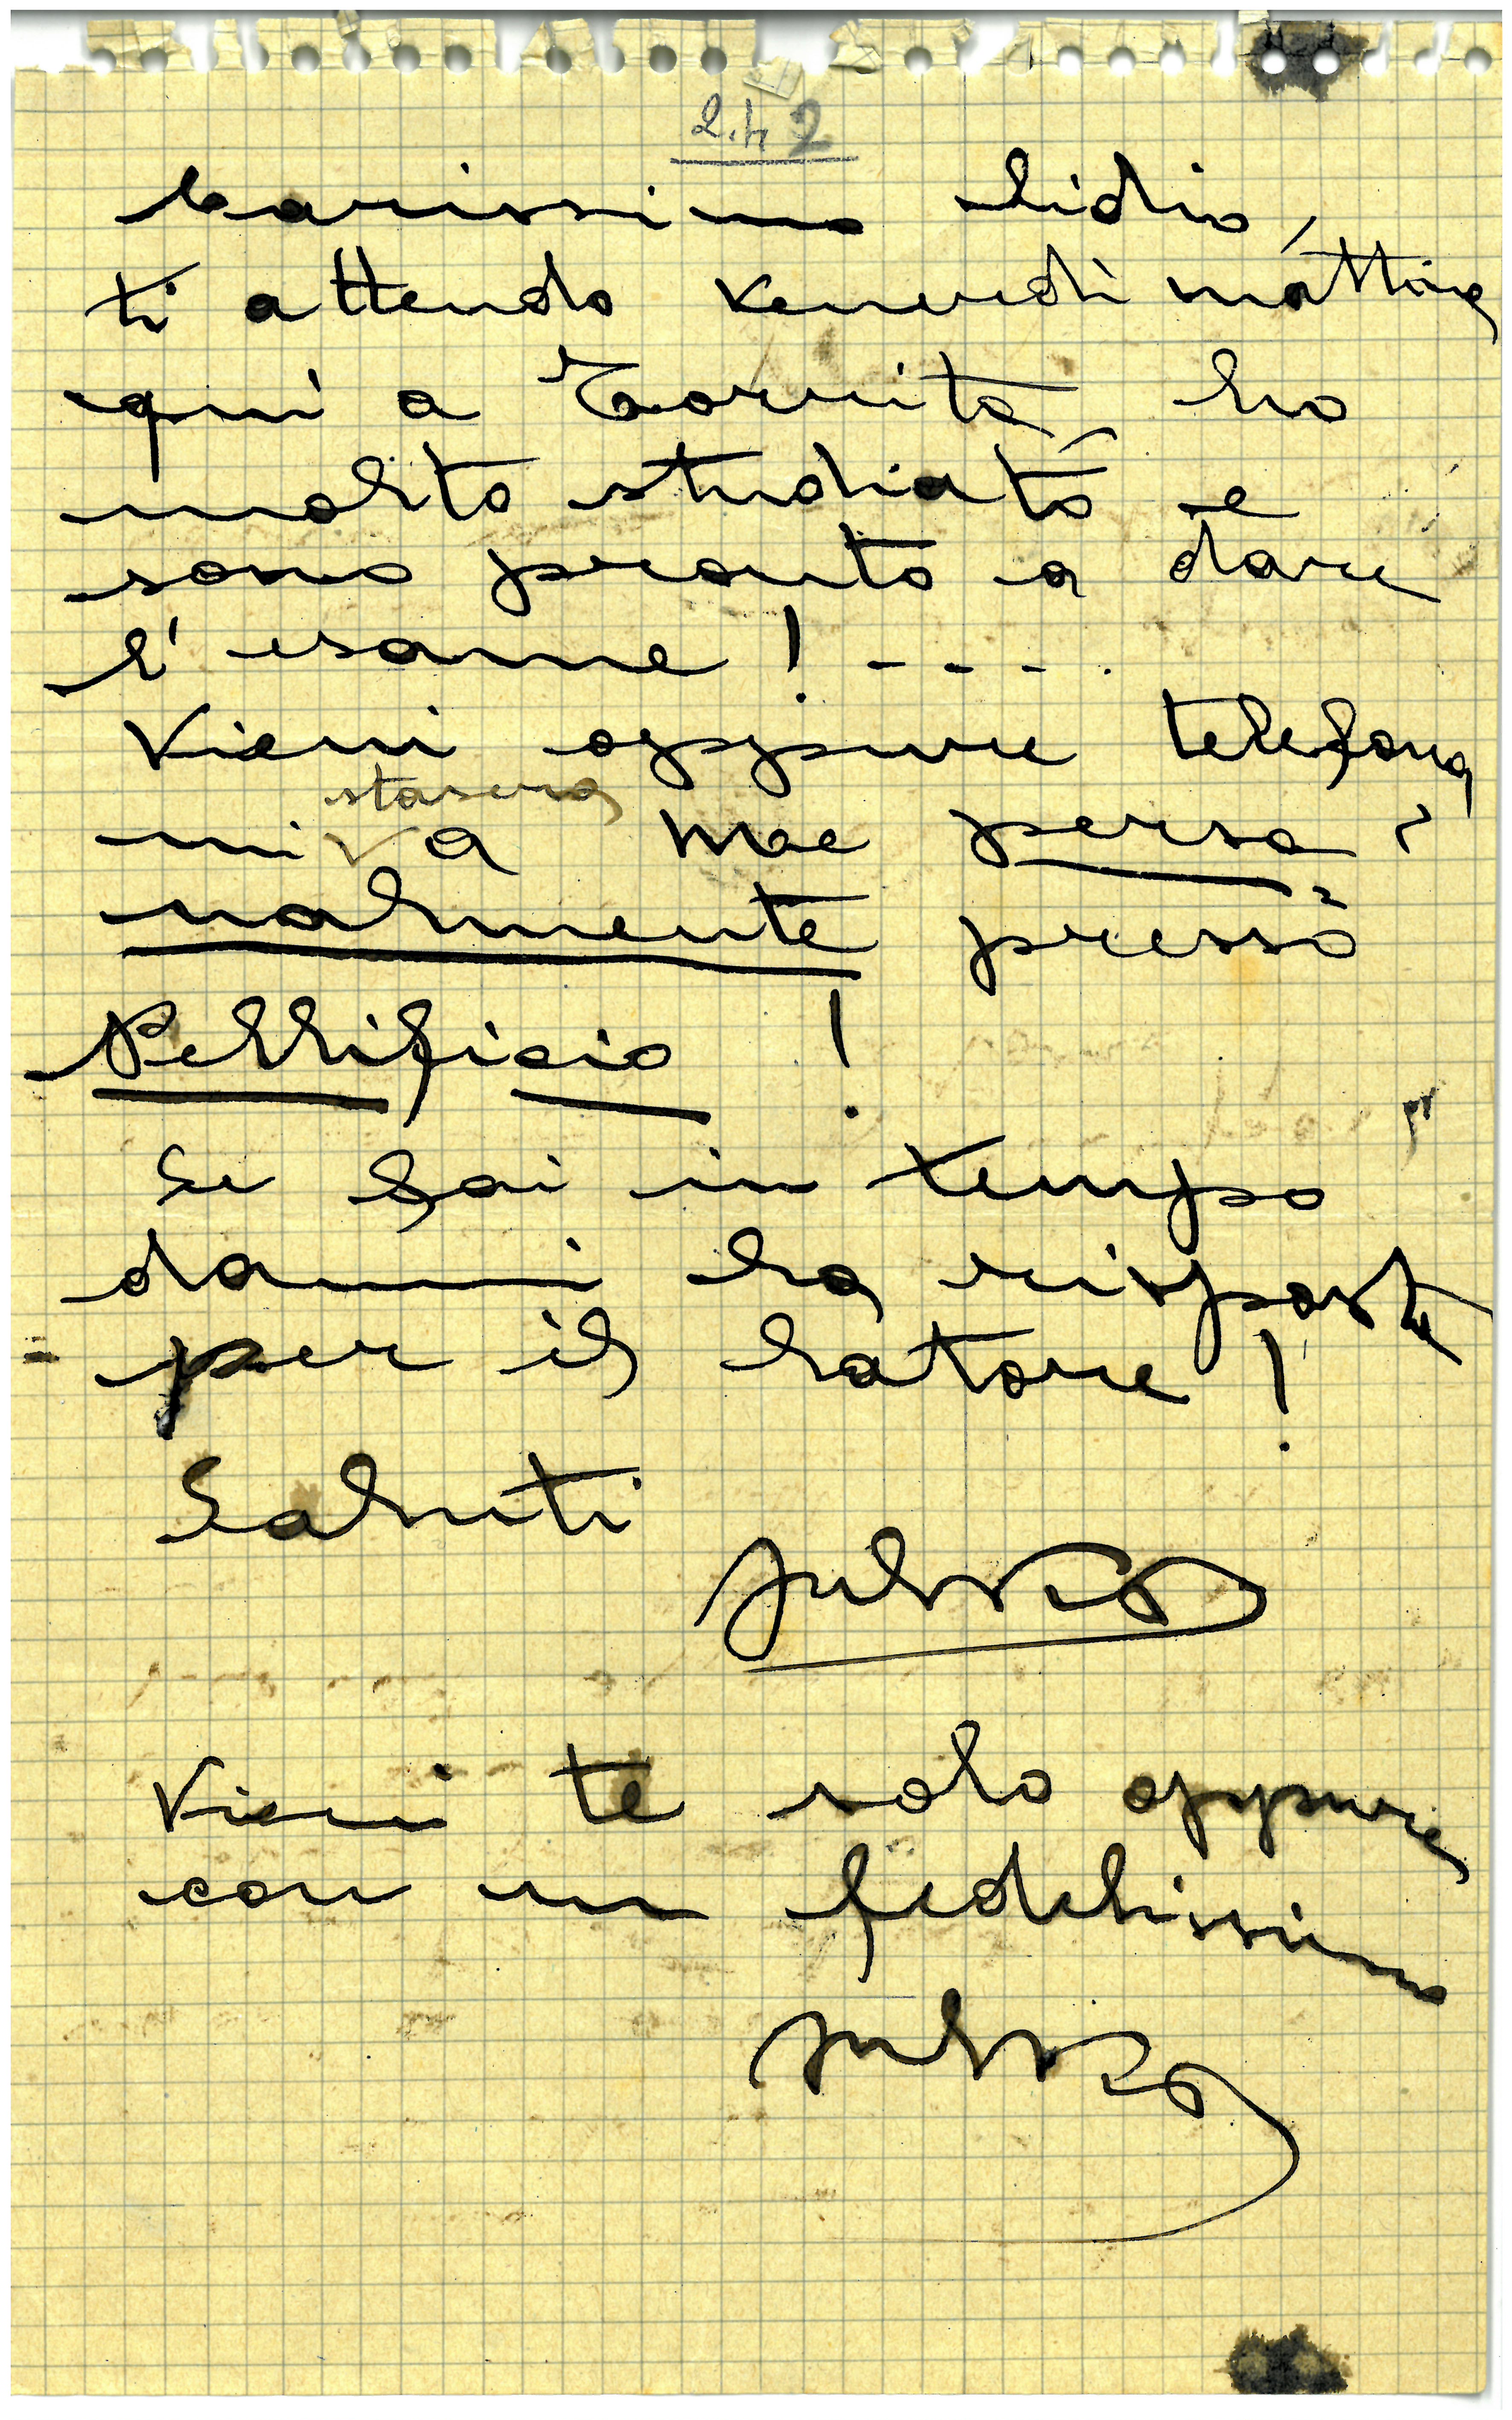 2.4.2
Carissimo Lidio,
ti attendo venerdì mattina
qui a Torrita, ho
molto studiato e
sono pronto a dare
l'esame! - - - .
Vieni oppure telefona
stasera
mi a me perso=
nalmente presso
Pellificio !
Se sei in tempo
dammi la risposta
per il latore !
Saluti
Vieni te solo oppure
con un fedelissimo